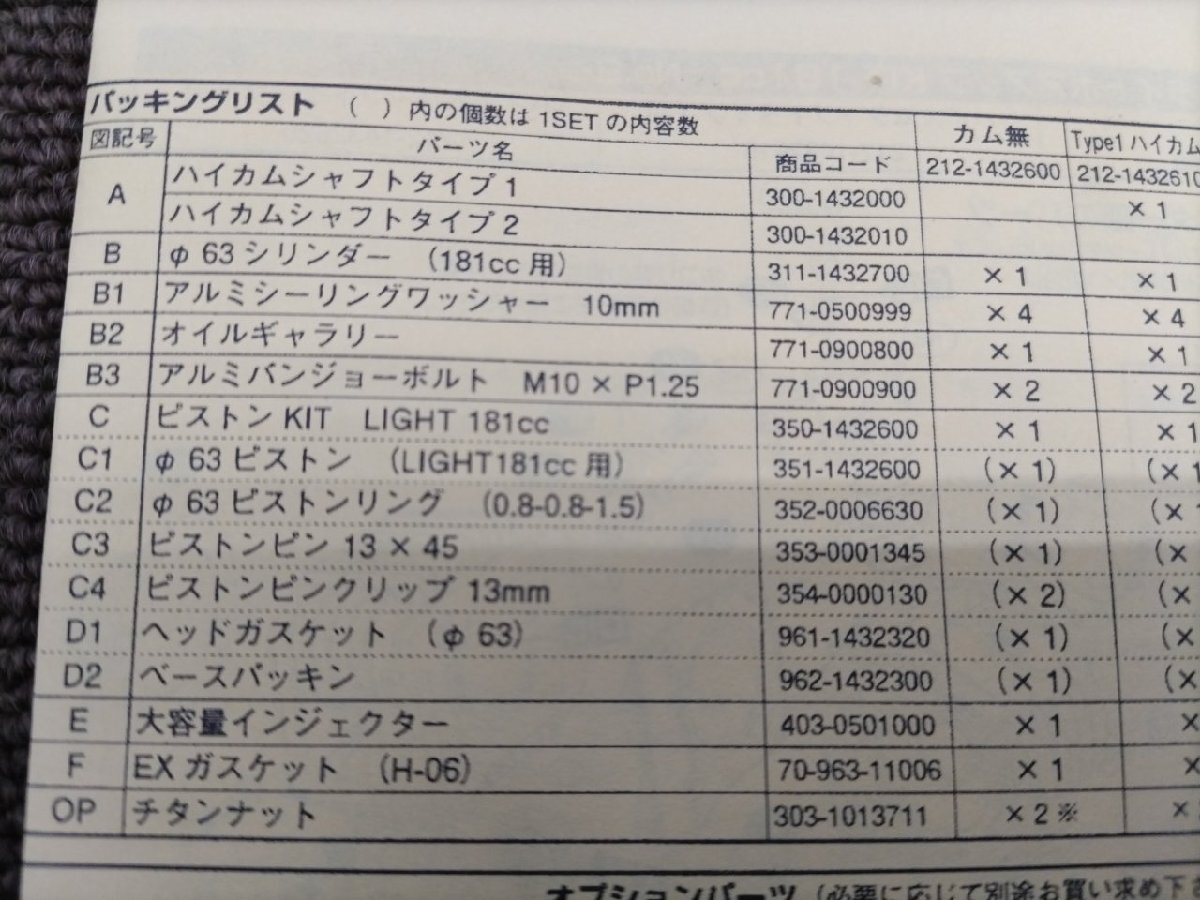 パッキングリスト （ ）内の個数は 1SET の内容数
図記号 パーツ名 商品コード カム無 Type1 ハイカム
212-1432600 212-1432610
A ハイカムシャフトタイプ 1 300-1432000 × 1
ハイカムシャフトタイプ 2 300-1432010
B φ 63 シリンダー （181cc 用） 311-1432700 × 1 × 1
B1 アルミシーリングワッシャー 10mm 771-0500999 × 4 × 4
B2 オイルギャラリー 771-0900800 × 1 × 1
B3 アルミバンジョーボルト M10 × P1.25 771-0900900 × 2 × 2
C ピストン KIT LIGHT 181cc 350-1432600 × 1 × 1
C1 φ 63 ピストン （LIGHT181cc 用） 351-1432600 （× 1） （× 1
C2 φ 63 ピストンリング （0.8-0.8-1.5） 352-0006630 （× 1） （×
C3 ピストンピン 13 × 45 353-0001345 （× 1） （×
C4 ピストンピンクリップ 13mm 354-0000130 （× 2） （×
D1 ヘッドガスケット （φ 63） 961-1432320 （× 1） （×
D2 ベースパッキン 962-1432300 （× 1） （×
E 大容量インジェクター 403-0501000 × 1 ×
F EX ガスケット （H-06） 70-963-11006 × 1 ×
OP チタンナット 303-1013711 × 2 ※ ×
オプションパーツ （必要に応じて別途お買い求め下さ